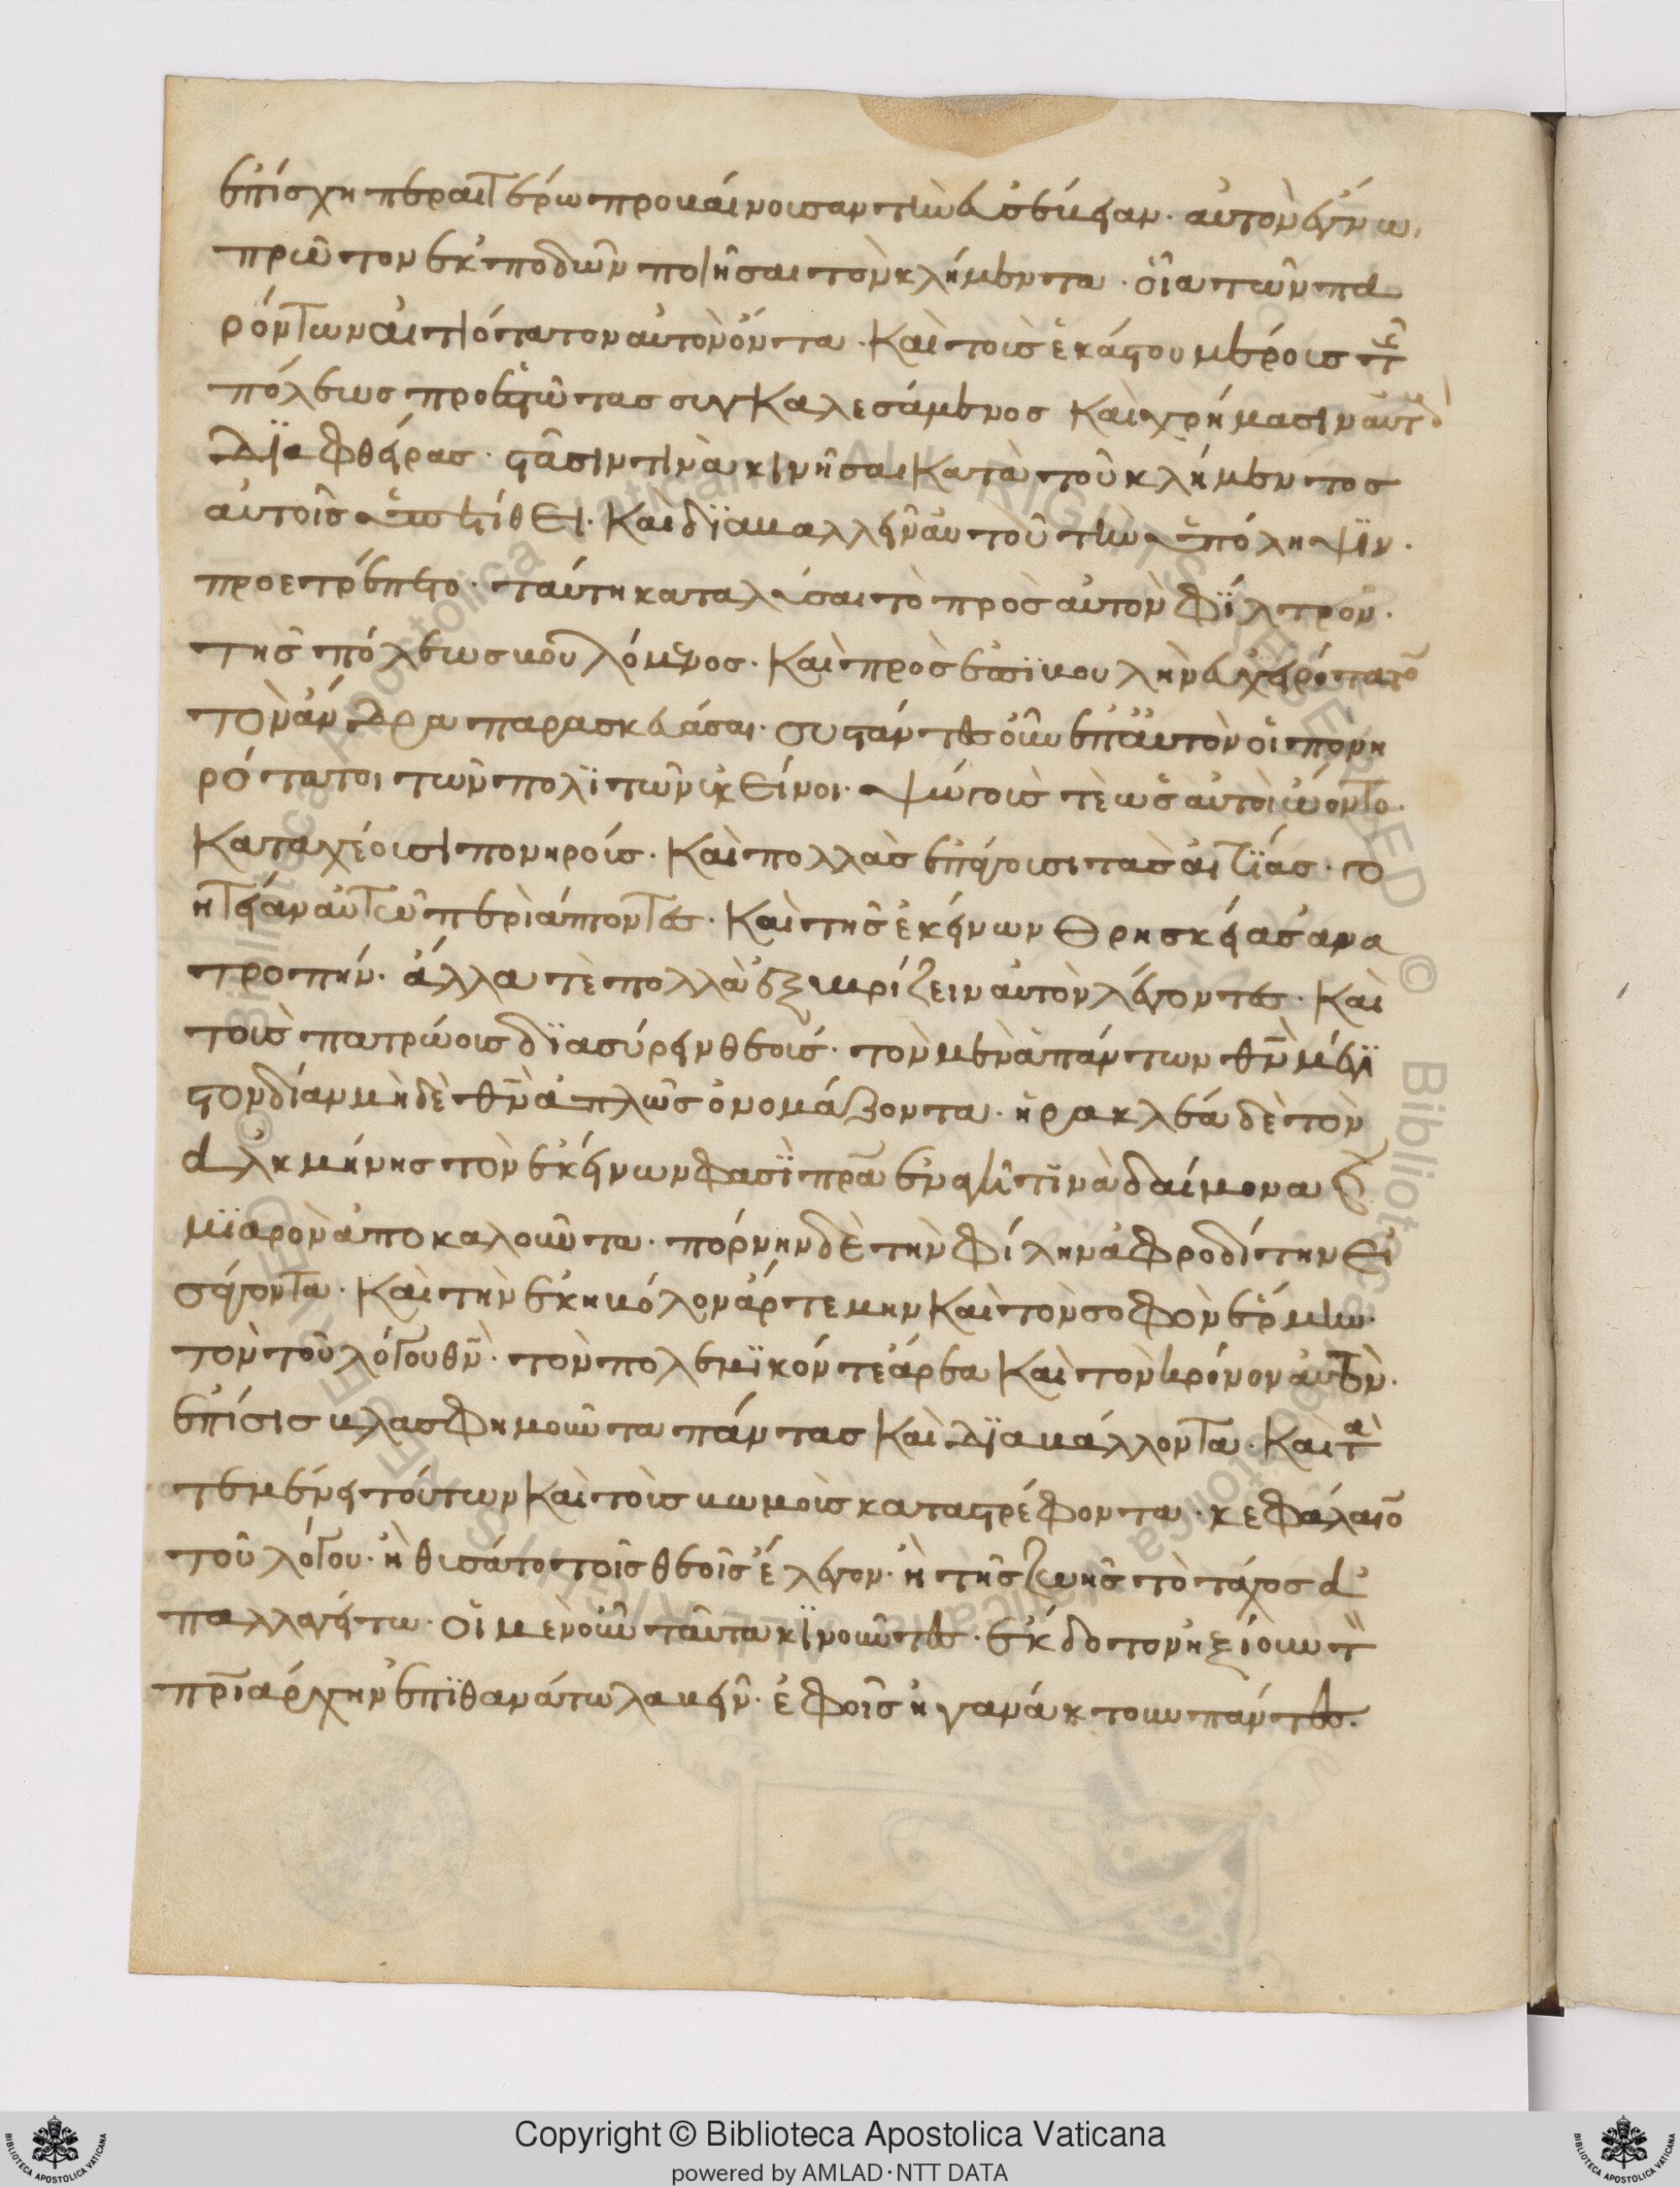 ἐπίσχη περαιτέρω προβαίνουσαν τὴν εὐσέβειαν. αὐτὸν ἔγνω
πρῶτον ἐκποδῶν ποιῆσαι τὸν κλήμεντα. οἷα τῶν πα
ρόντων αἰτιότατον αὐτὸν ὄντα. Καὶ τοὺς ἑκάστου μέρους τῆς
πόλεως προεστῶτας συγκαλεσάμενος καὶ χρήμασιν αὐτοὺς
διαφθείρας. στάσιν τινὰ κινῆσαι κατὰ τοῦ κλήμεντος
αὐτοῖς ὑπετίθει. Καὶ διαβαλλεῖν αὐτοῦ τὴν ὑπόληψιν.
προετρέπετο. ταύτη καταλῦσαι τὸ πρὸς αὐτὸν φίλτρον.
τῆς πόλεως βουλόμενος. Καὶ πρὸς ἐπιβουλὴν εὐχερέστατον
τὸν ἄνδρα παρασκευάσαι. συστάντες οὖν ἐπ' αὐτὸν οἱ πονη
ρότατοι τῶν πολιτῶν ἐκεῖνοι. ψόγους τὲ ὡς αὐτοὶ ᾤοντο.
Καταχέουσι πονηροῖς. Καὶ πολλὰς ἐπάγουσι τὰς αἰτίας. γο
ητείαν αὐτῷ περιάπτοντες. Καὶ τῆς ἐκείνων θρησκείας ἀνα
τροπήν. ἄλλα τὲ πολλὰ ἐξυβρίζειν αὐτὸν λέγοντες. Καὶ
τοὺς πατρώους διασύρειν θεούς. τὸν μὲν ἁπάντων θν μέγι
στον δίαν μὴ δὲ θν ἁπλῶς ὀνομάζοντα. ἡρακλέα δὲ τὸν
ἀλκμήνης τὸν ἐκείνων φασὶ πρα ἐναγῆ τινὰ δαίμονα καὶ
μιαρὸν ἀποκαλοῦντα. πόρνην δὲ τὴν φίλην ἀφροδίτην εἰ
σάγοντα. Καὶ τὴν ἑκηβόλον ἄρτεμην καὶ τὸν σοφὸν ἑρμῆν.
τὸν τοῦ λόγου θν. τὸν πολεμικόν τε ἄρεα καὶ τὸν κρόνον αὐτὸν.
ἐπίσις βλασφημοῦντα πάντας καὶ διαβάλλοντα. Καὶ τὰ
τεμένη τούτων καὶ τοὺς βωμοὺς καταστρέφοντα. κεφάλαιον
τοῦ λόγου. ἢ θυσάτο τοῖς θεοῖς ἔλεγον. ἢ τῆς ζωῆς τὸ τάχος ἀ
παλλαγήτω. οἱ μὲν οὖν ταῦτα κινοῦντες. ἔκδοτον ἠξίουν τὸν
πριάρχην ἐπὶ θανάτω λαβεῖν. ἐφ' οἷς ἠγανάκτουν πάντες.
Copyright © Biblioteca Apostolica Vaticana
powered by AMLAD·NTT DATA